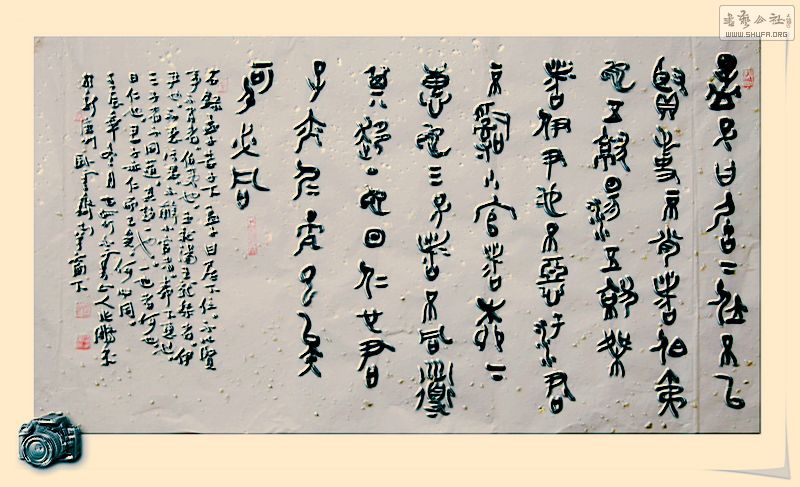 书艺公社
WWW.SHUFA.ORG
孟子曰居下位不以
賢事不肖者伯夷
也五就湯五就桀
者伊尹也不惡汙君
不辭小官者柳下
惠也三子者不同道
其趨一也曰仁也君
子亦仁而已矣
何必同
右錄孟子告子下孟子曰居下位不以賢
事不肖者伯夷也五就湯五就桀者伊
尹也不惡污君不辭小官者柳下惠也
三子者不同道其趨一也一者何也
曰仁也君子亦仁而已矣何必同
壬辰年冬月
臥雲齋南窗下